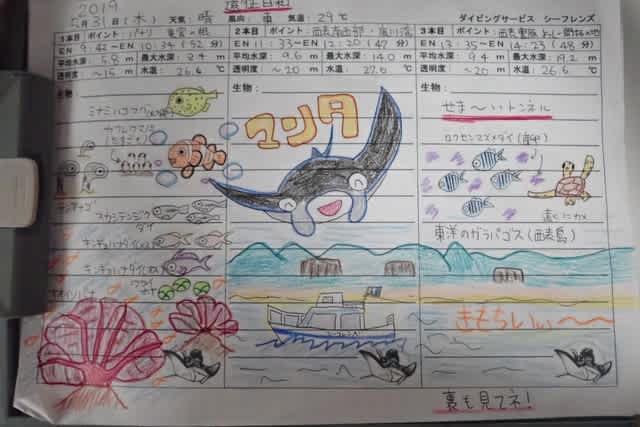 2019
5月31日(木) 天気:晴 風向:東 気温:29℃ ダイビングサービス シーフレンズ
1本目 ポイント:パナリ
EN 9:42〜EN 10:34(52分)
平均水深:5.8m 最大水深:8.4m
透明度:〜15m 水温:26.4℃
生物:
ミナミハコフグ
カクレクマノミ
スカシテンジクダイ
キンギョハナダイ
キンギョハナダイ
2本目 ポイント:西表南西部・鹿川湾
EN 11:33〜EN 12:20(47分)
平均水深:9.6m 最大水深:14.0m
透明度:〜20m 水温:27.6℃
生物:
マンタ
3本目 ポイント:西表
EN 13:35〜EN 14:23(48分)
平均水深:9.4m 最大水深:19.2m
透明度:〜20m 水温:26.6℃
生物:
せま〜いトンネル
ロクセンスズメダイ
東洋のガラパゴス(西表島)
きもちいぃ〜〜
裏も見てネ!